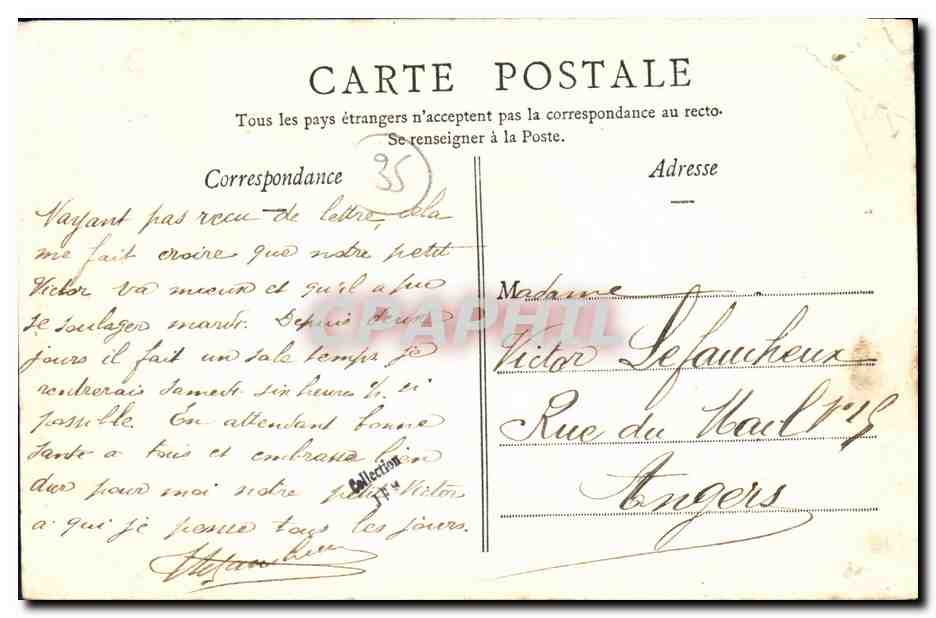 CARTE POSTALE
Tous les pays étrangers n'acceptent pas la correspondance au recto.
Se renseigner à la Poste.
35
Correspondance
Adresse
Nayant pas recu de lettre, cela
me fait croire que notre petit
Victor va mieux et qu'il a pu
se soulager mardi. Depuis deux
jours il fait un sale temps je
rentrerais samedi six heures ½ si
possible. En attendant bonne
sante a tous et embrasse bien
dur pour moi notre petit Victor
a qui je pense tous les jours.
VLefaucheux
Madame
Victor Lefaucheux
Rue du Mail
Angers
Collection
JFM
CPAPHIL